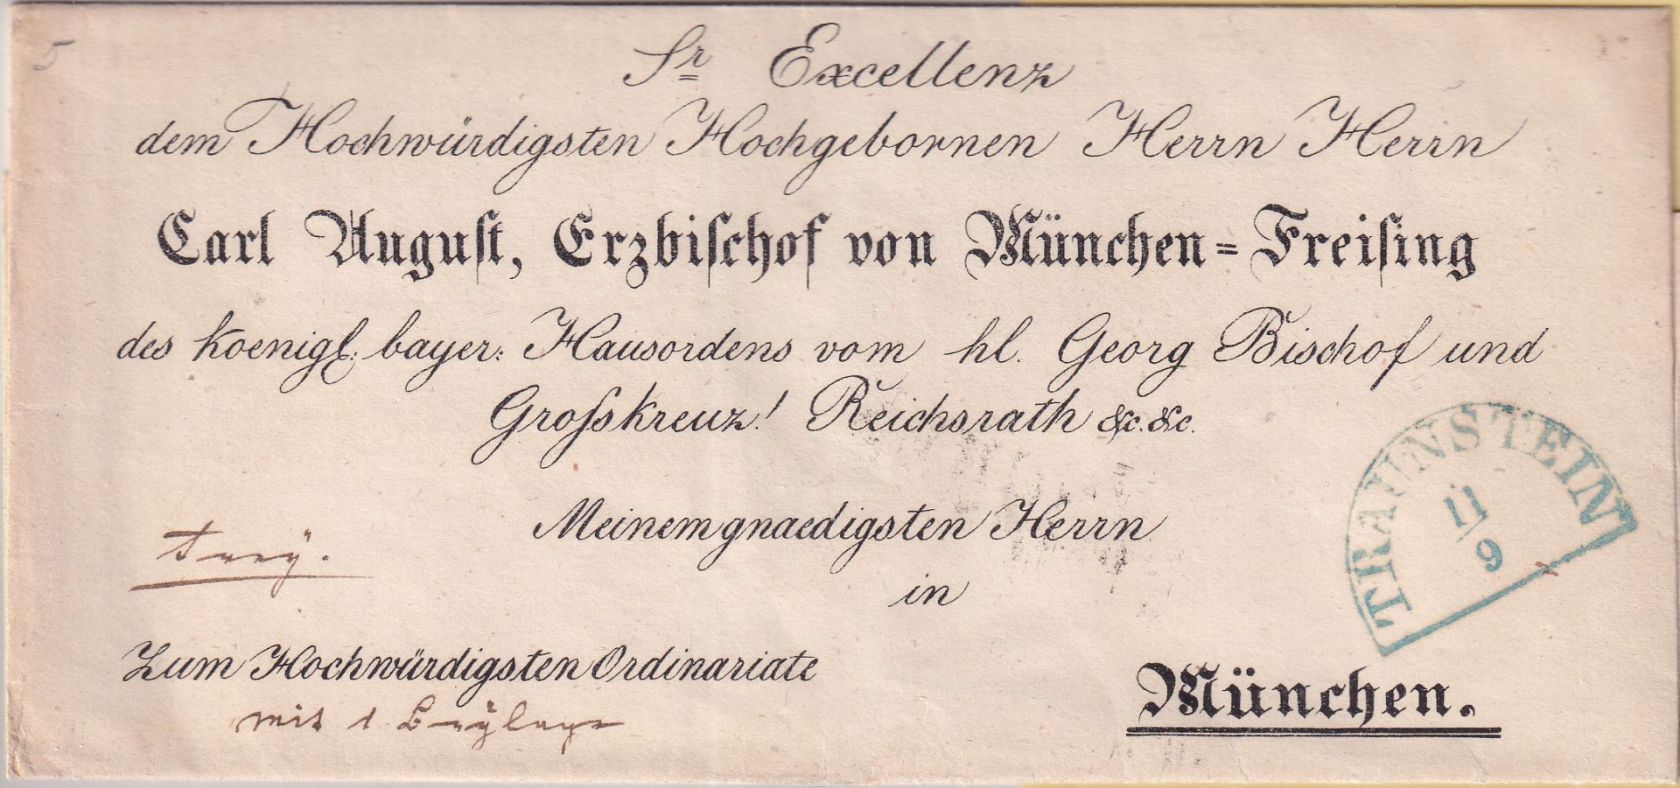 5
Sr Excellenz
dem Hochwürdigsten Hochgebornen Herrn Herrn
Carl August, Erzbischof von München=Freising
des koenigl: bayer: Hausordens vom hl. Georg Bischof und
Grosskreuz! Reichsrath &c. &c.
TRAUNSTEIN
11
9
Meinem gnaedigsten Herrn
in
Zum Hochwürdigsten Ordinariate
mit 1 Beylage
München.